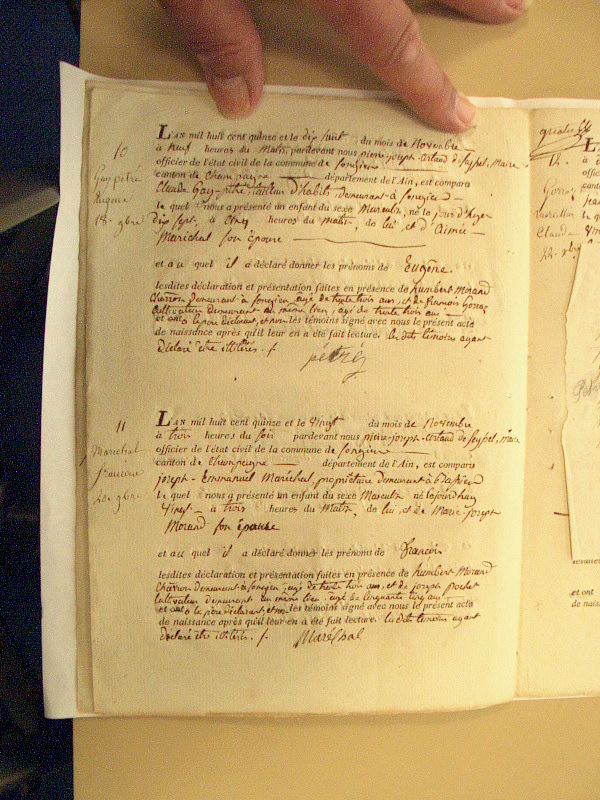 10
Gay pétré
Eugene
18. 9bre
L'AN mil huit cent quinze et le dix huit du mois de Novembre
à neuf heures du Matin, pardevant nous pierre-joseph-Costaud de Seyssel, Maire
officier de l'état civil de la commune de Songieu
canton de Champagne département de l'Ain, est comparu
Claude Gay-pétré, tailleur d'habits demeurant à Songieu
le quel nous a présenté un enfant du sexe Masculin, né le jour d'hyer
Dix sept, à cinq heures du Matin, de lui et d'Aimée
Maréchal son épouse
et au quel il a déclaré donner les prénoms de Eugêne.
lesdites déclaration et présentation faites en présence de humbert Morand
Charron demeurant à Songieu, âgé de trente trois ans, et de francois
Cultivateur demeurant au même lieu, âgé de trente trois ans
et ont le père déclarant, et non les témoins signé avec nous le présent acte
de naissance après qu'il leur en a été fait lecture. les dits temoins ayant
déclaré être illitérés. /.
pétré
11
Marechal
francois
20. 9bre
L'AN mil huit cent quinze et le Vingt du mois de Novembre
à trois heures du soir pardevant nous pierre-joseph-Costaud de Seyssel, Maire
officier de l'état civil de la commune de Songieu
canton de Champagne département de l'Ain, est comparu
joseph-Emmanuel Maréchal, propriétaire demeurant à
le quel nous a présenté un enfant du sexe Masculin né le jourd'huy
Vingt à trois heures du Matin, de lui, et de Marie-joseph
Morand son épouse
et au quel il a déclaré donner les prénoms de francois
lesdites déclaration et présentation faites en présence de humbert Morand
Charron demeurant à Songieu, agé de trente trois ans, et de joseph pochet
Cultivateur demeurant au même lieu, agé de cinquante cinq ans
et ont le père déclarant, et non les témoins signé avec nous le présent acte
de naissance après qu'il leur en a été fait lecture. les dits temoins ayant
déclaré être illitérés. /.
Maréchal
12.
Claude
22. 9bre
et ont
de nais